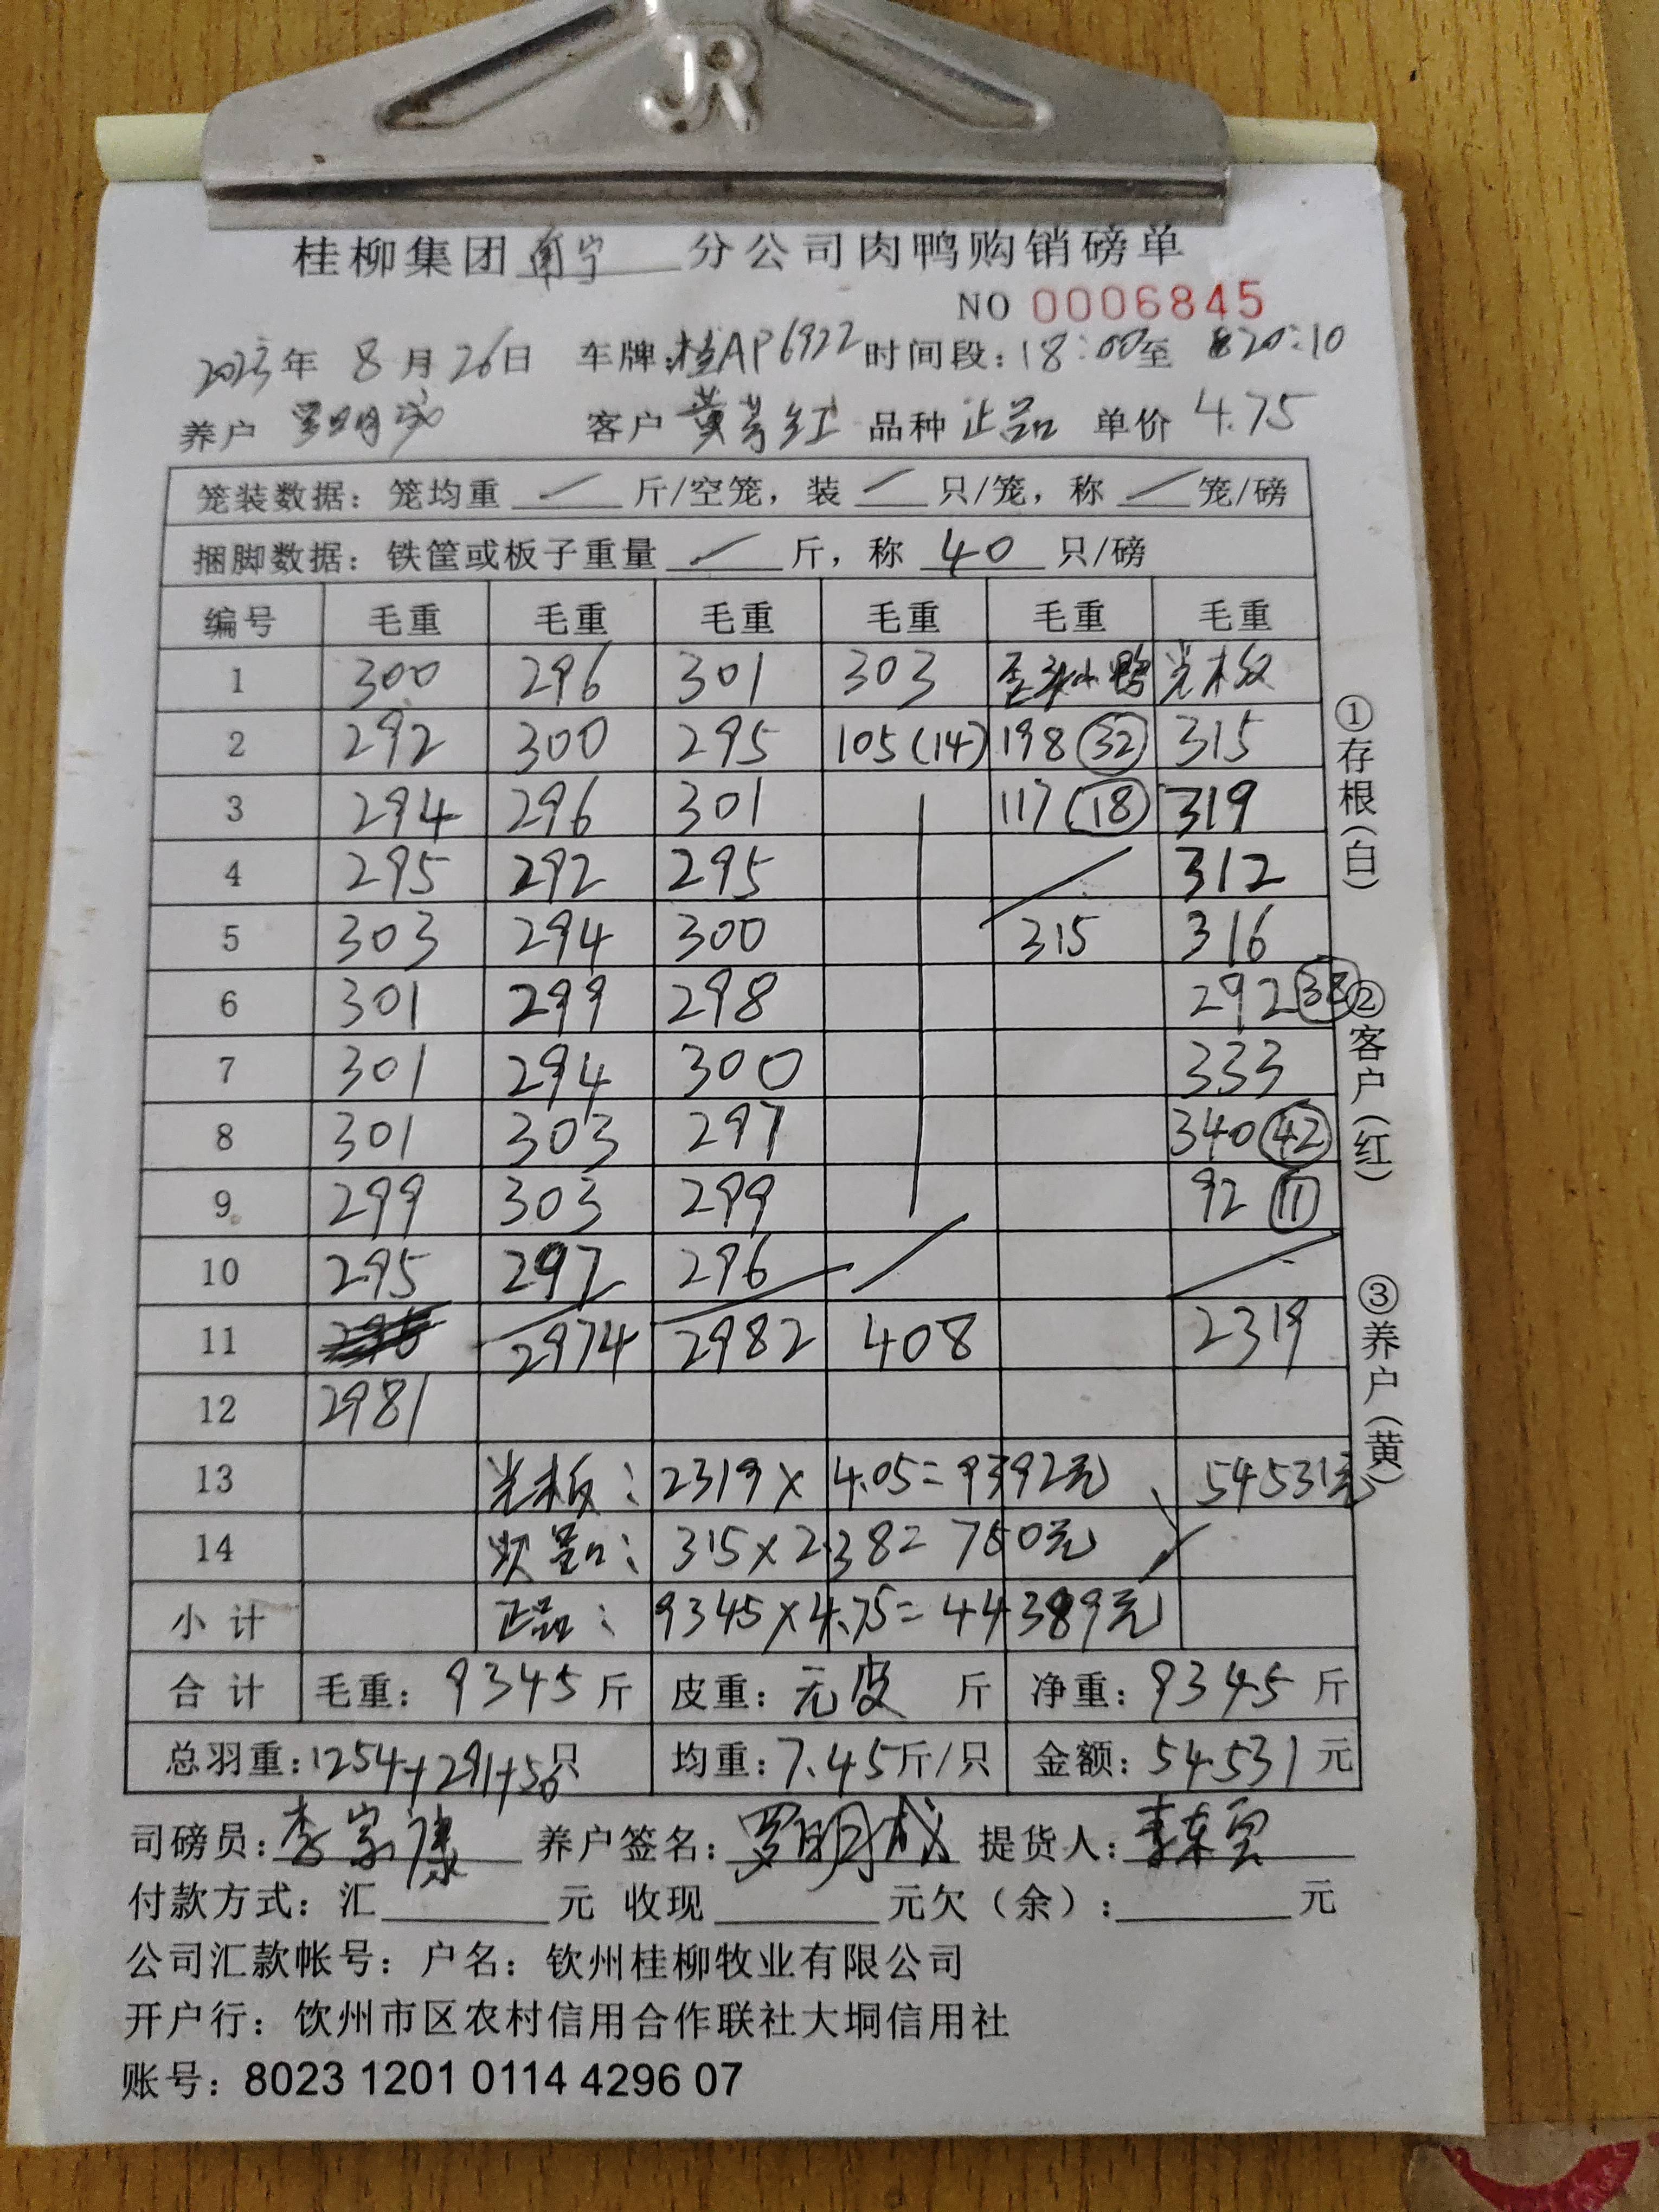 JR
桂柳集团南宁分公司肉鸭购销磅单
NO 0006845
2023年 8月26日 车牌:桂AP6922 时间段:18:00至 20:10
养户 罗明成 客户 黄芳红 品种 正品 单价 4.75
笼装数据：笼均重 / 斤/空笼，装 / 只/笼，称 / 笼/磅
捆脚数据：铁筐或板子重量 / 斤，称 40 只/磅
编号 毛重 毛重 毛重 毛重 毛重 毛重
1 300 296 301 303 歪头小鸭 光板
2 292 300 295 105(14) 198 32 315
3 294 296 301 117 18 319
4 295 292 295 312
5 303 294 300 315 316
6 301 299 298 292 38
7 301 294 300 333
8 301 303 297 340 42
9 299 303 299 92 11
10 295 297 296
11 2974 2982 408 2319
12 2981
13 光板：2319×4.05=9392元 54531元
14 次品：315×2.38=750元
小计 正品：9345×4.75=44389元
合计 毛重：9345斤 皮重：无皮 斤 净重：9345斤
总羽重:1254+291+50只 均重:7.45斤/只 金额:54531元
司磅员:李家康 养户签名:罗明成 提货人:
付款方式：汇 元 收现 元欠（余）: 元
公司汇款帐号：户名：钦州桂柳牧业有限公司
开户行：钦州市区农村信用合作联社大垌信用社
账号：8023 1201 0114 4296 07
①存根(白)
②客户(红)
③养户(黄)